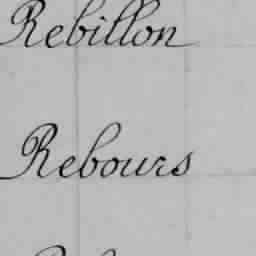 Rebillon
Rebours